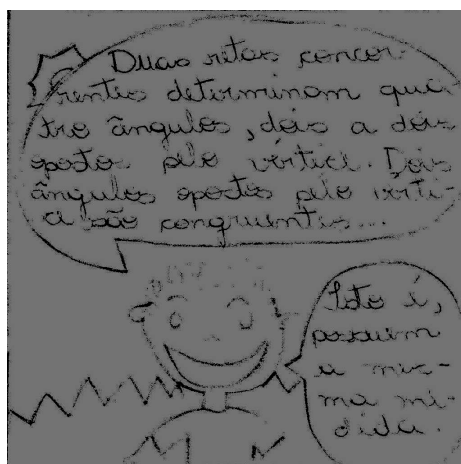 Duas retas concor-
rentes determinam qua-
tro ângulos, dois a dois
opostos pelo vértice. Dois
ângulos opostos pelo vérti-
ce são congruentes...
Isto é,
possuem
a mes-
ma me-
dida.